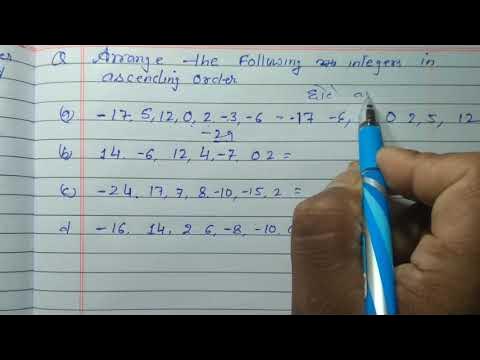 Q Arrange the following integers in
ascending order
छोटे
(a) -17, 5, 12, 0, 2, -3, -6 - -17 -6, 0 2, 5, 12
-29
(b) 14. -6, 12, 4, -7, 0 2 =
(c) -24, 17, 7, 8, -10, -15, 2 =
d) -16, 14, 2 6, -8, -10,